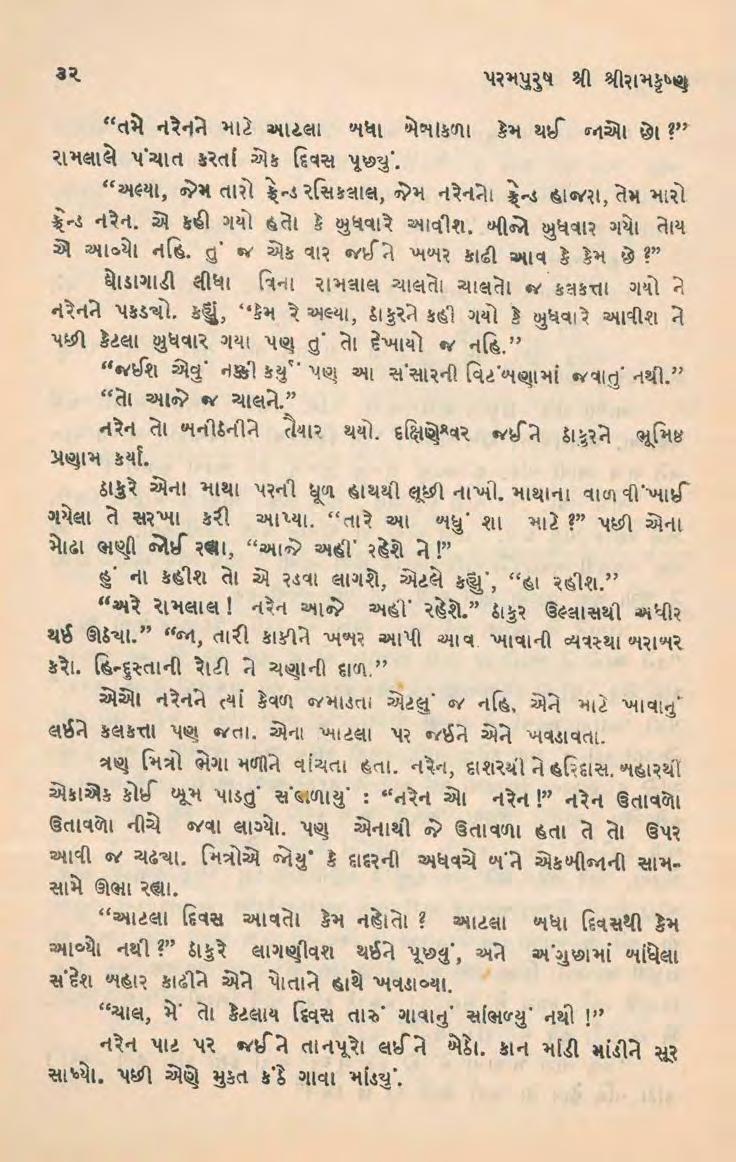 ૩૨
પરમપુરુષ શ્રી શ્રીરામકૃષ્ણ
“તમે નરેનને માટે આટલા બધા બેબાકળા કેમ થઈ જાઓ છો ?”
રામલાલે પંચાત કરતાં એક દિવસ પૂછ્યું.
“અલ્યા, જેમ તારો ફ્રેન્ડ રસિકલાલ, જેમ નરેનનો ફ્રેન્ડ હાજરા, તેમ મારો
ફ્રેન્ડ નરેન. એ કહી ગયો હતો કે બુધવારે આવીશ. બીજો બુધવાર ગયો તોય
એ આવ્યો નહિ. તું જ એક વાર જઈને ખબર કાઢી આવ કે કેમ છે ?”
ઘોડાગાડી લીધા વિના રામલાલ ચાલતો ચાલતો જ કલકત્તા ગયો ને
નરેનને પકડ્યો. કહ્યું, “કેમ રે અલ્યા, ઠાકુરને કહી ગયો કે બુધવારે આવીશ ને
પછી કેટલા બુધવાર ગયા પણ તું તો દેખાયો જ નહિ.”
“જઈશ એવું નક્કી કર્યું પણ આ સંસારની વિટંબણામાં જવાતું નથી.”
“તો આજે જ ચાલને.”
નરેન તો બનીઠનીને તૈયાર થયો. દક્ષિણેશ્વર જઈને ઠાકુરને ભૂમિષ્ઠ
પ્રણામ કર્યા.
ઠાકુરે એના માથા પરની ધૂળ હાથથી લૂછી નાખી. માથાના વાળ વીંખાઈ
ગયેલા તે સરખા કરી આપ્યા. “તારે આ બધું શા માટે ?” પછી એના
મોઢા ભણી જોઈ રહ્યા, “આજે અહીં રહેશે ને !”
હું ના કહીશ તો એ રડવા લાગશે, એટલે કહ્યું, “હા રહીશ.”
“અરે રામલાલ ! નરેન આજે અહીં રહેશે.” ઠાકુર ઉલ્લાસથી અધીર
થઈ ઊઠ્યા.” “જા, તારી કાકીને ખબર આપી આવ. ખાવાની વ્યવસ્થા બરાબર
કરો. હિન્દુસ્તાની રોટી ને ચણાની દાળ.”
એઓ નરેનને ત્યાં કેવળ જમાડતા એટલું જ નહિ, એને માટે ખાવાનું
લઈને કલકત્તા પણ જતા. એના ખાટલા પર જઈને એને ખવડાવતા.
ત્રણ મિત્રો ભેગા મળીને વાંચતા હતા. નરેન, દાશરથી ને હરિદાસ. બહારથી
એકાએક કોઈ બૂમ પાડતું સંભળાયું : “નરેન ઓ નરેન !” નરેન ઉતાવળો
ઉતાવળો નીચે જવા લાગ્યો. પણ એનાથી જે ઉતાવળા હતા તે તો ઉપર
આવી જ ચઢ્યા. મિત્રોએ જોયું કે દાદરની અધવચે બંને એકબીજાની સામ-
સામે ઊભા રહ્યા.
“આટલા દિવસ આવતો કેમ નહોતો ? આટલા બધા દિવસથી કેમ
આવ્યો નથી ?” ઠાકુરે લાગણીવશ થઈને પૂછ્યું, અને અંગુછામાં બાંધેલા
સંદેશ બહાર કાઢીને એને પોતાને હાથે ખવડાવ્યા.
“ચાલ, મેં તો કેટલાય દિવસ તારું ગાવાનું સાંભળ્યું નથી !”
નરેન પાટ પર જઈને તાનપૂરો લઈને બેઠો. કાન માંડી માંડીને સૂર
સાધ્યો. પછી એણે મુક્ત કંઠે ગાવા માંડ્યું.